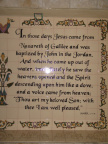 In those days Jesus came from
Nazareth of Galilee and was
baptized by John in the Jordan.
And when he came up out of
water, immediately he saw the
heavens opened and the Spirit
descending upon him like a dove,
and a voice came from heaven,
Thou art my beloved Son; with
thee I am well pleased."